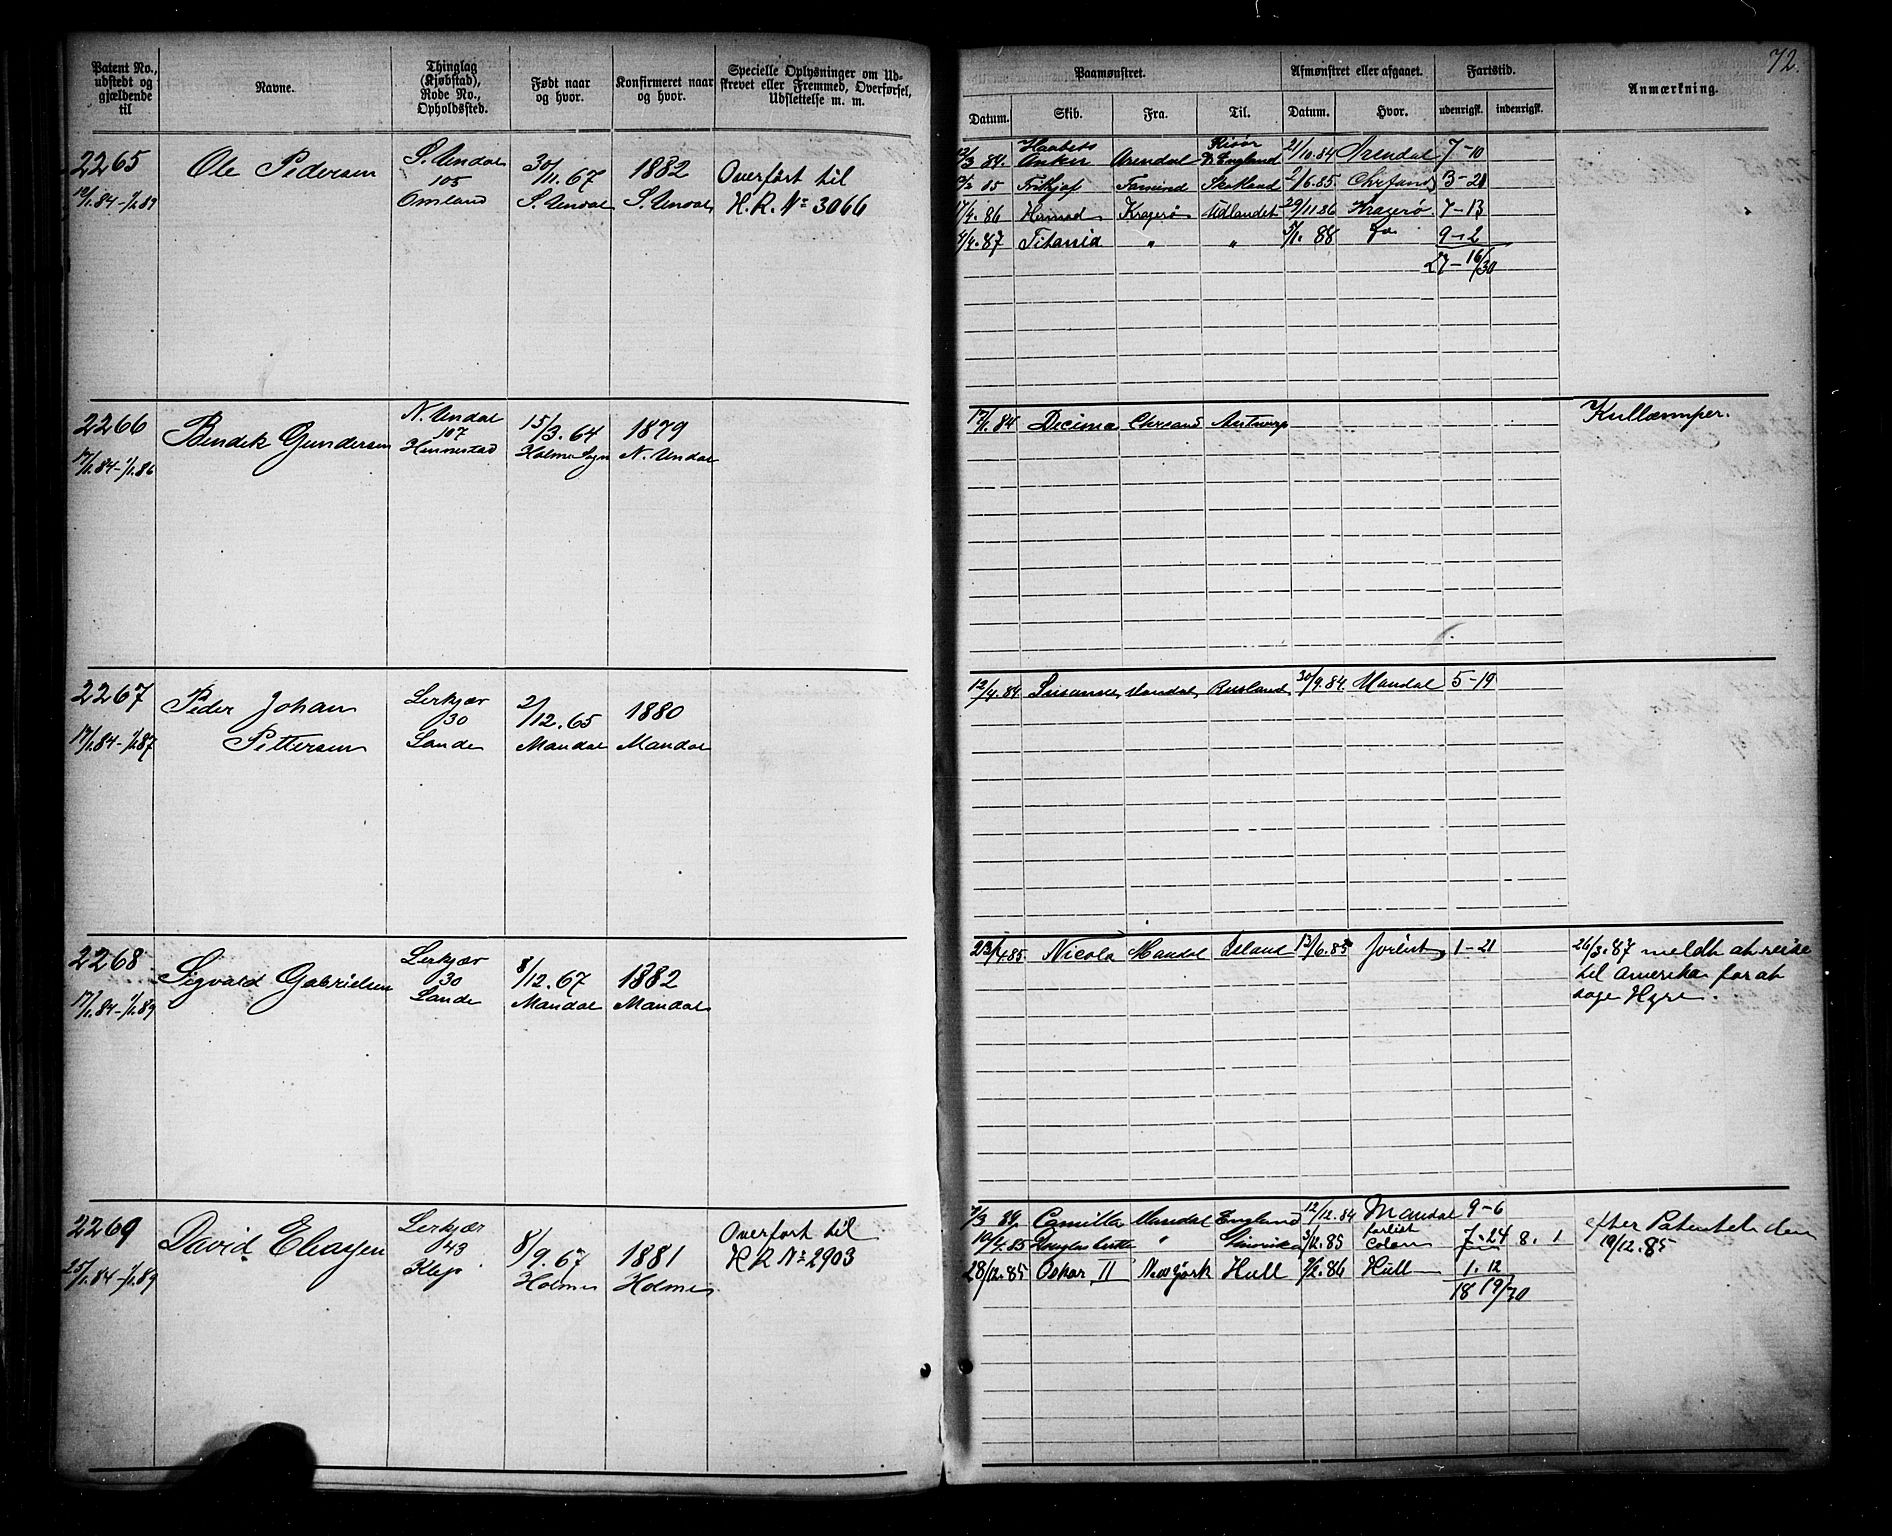 72.
Patent No., udstedt og gjældende til
Navne.
Thinglag (Kjøbstad), Rode No., Opholdssted.
Født naar og hvor.
Konfirmeret naar og hvor.
Specielle Oplysninger om Udskrevet eller Fremmed, Overførsel, Udslettelse m. m.
Paamønstret.
Afmønstret eller afgaaet.
Fartstid.
Anmærkning.
Datum. Skib. Fra. Til. Datum. Hvor. udenrigsk. indenrigsk.
2265 Ole Pedersen S. Undal 30/11. 67 1882 Overført til
105
Omland S. Undal S. Undal H. R. No 3066
12/3 84. Haabets Anker Arendal Risör & England 21/10.84 Arendal 7-10
85 Frithjof Skotland 2/6.85 3-21
17/4. 86 Hermod Kragerø Udlandet 29/11 86 Kragerø 7-13
4/4. 87 Titania " " 5/1. 88 do 9-2
27-16/30
2266 Bendik Gundersen N. Undal 15/3. 64 1879
107
17/1.84-1/1.86 Holme Sogn N. Undal
17/1. 84 Decima Antwerp Kullæmper.
2267 Peder Johan Pettersen Lerkjær 2/12. 65 1880
30
17/1.84-1/1.87 Lande Mandal Mandal
12/4. 84 Susanne Mandal Rusland 30/9.84. Mandal 5-19
2268 Sigvald Gabrielsen Lerkjær 8/12. 67 1882
30
17/1.84-1/1.89 Lande Mandal Mandal
23/4.85. Nicolo Mandal Island 13/6.85 forlist 1-21
26/3.87 meldt at reise
til Amerika for at
søge Hyre.
2269 David Eliasen Lerkjær 8/9. 67 1881 Overført til
43
25/1.84-1/1.89 Klep Holme Holme H R No 2903
7/3 84. Camilla Mandal England 12/12.84 Mandal 9-6
10/4.85 " /12.85 forlist Colon 7-24 8. 1
28/12.85 Oskar II New York Hull 9/2.86 Hull 1. 12
18 19/30
efter Patentet den
19/12.85